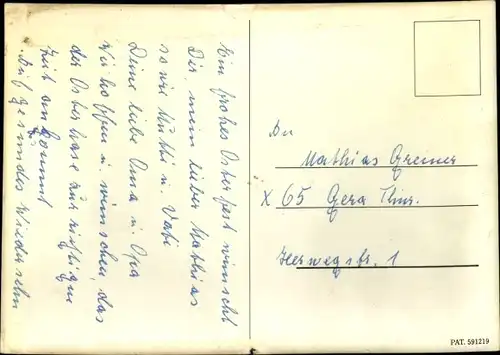 Ein frohes Osterfest wünscht
Dir, mein lieber Mathias
sowie Mutti u. Vati
Deine liebe Oma u. Opa
Wir hoffen u. wünschen, das
der Osterhase zur richtigen
Zeit an kommt
Auf gesundes Wiedersehn
An
Mathias Greiner
X 65 Gera Thür.
Herwegstr. 1
PAT. 591219